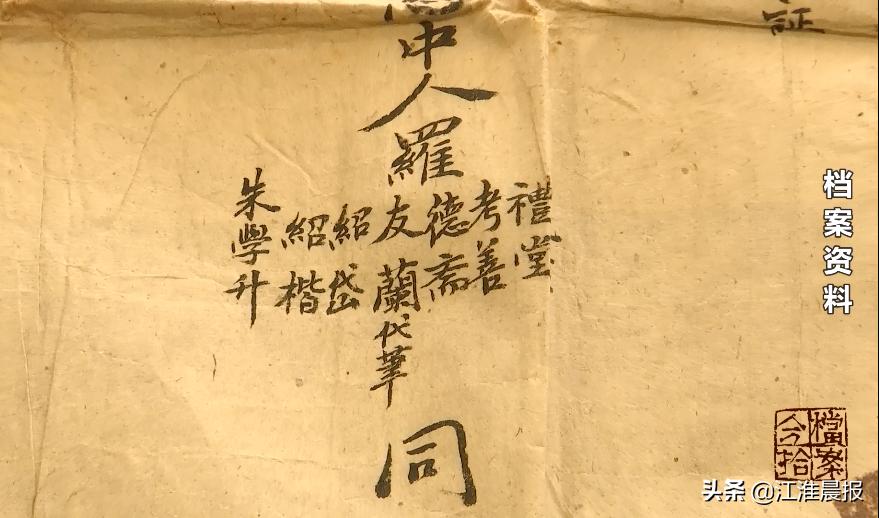 証
中人羅
禮堂
考善
德斋
友蘭代筆
紹岱
紹楷
朱學升
同
档案资料
檔案
今拾
头条 @江淮晨报